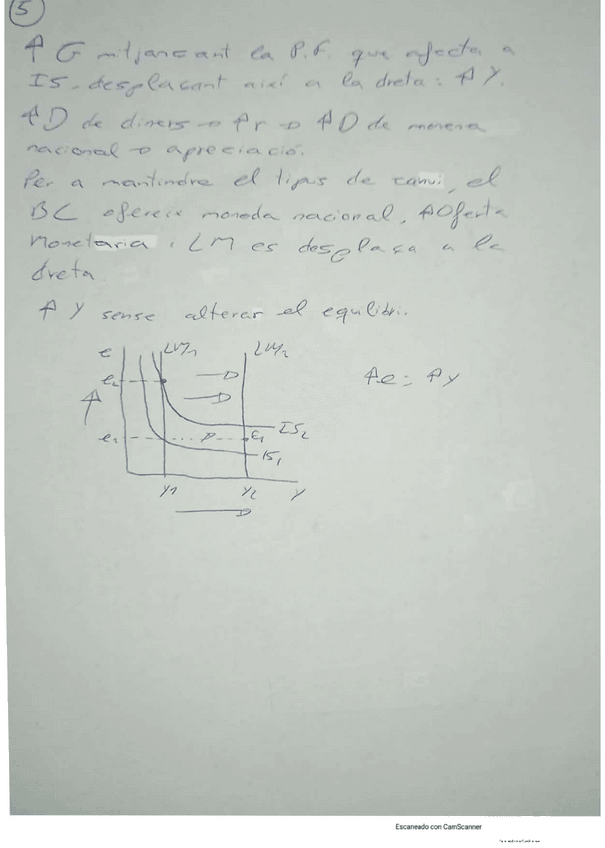 5
↑ G mitjançant la P.F. que afecta a
IS, desplaçant així a la dreta: ↑ Y.
↑D de diners → ↑r → ↑D de moneda
nacional → apreciació.
Per a mantindre el tipus de canvi, el
BC ofereix moneda nacional, ↑Oferta
Monetaria i LM es desplaça a la
dreta
↑ Y sense alterar el equilibri.
e LM1 LM2
e2
↑e = ↑y
IS2
e1 E1
IS1
Y1 Y2 Y
Escaneado con CamScanner